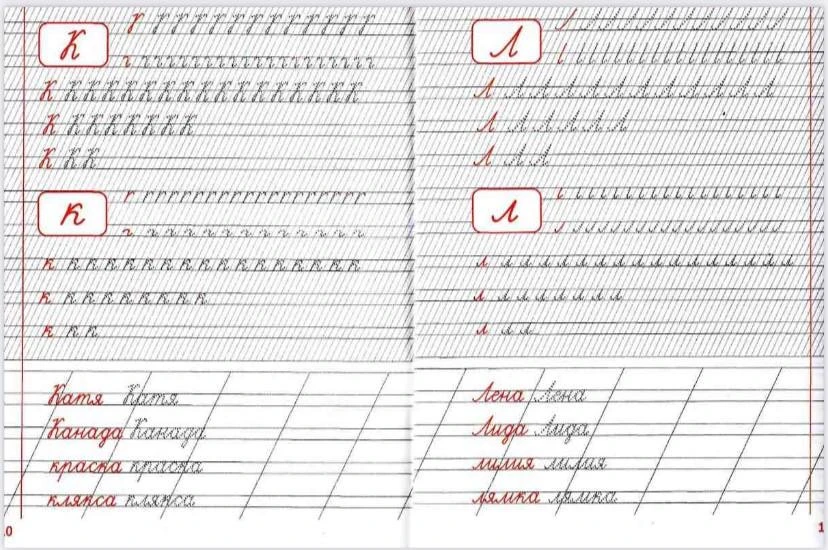 К
К К К К К К К К К К К К К К К К К
К К К К К К К К
К К К
к
к к к к к к к к к к к к к к к к к
к к к к к к к к к
к к к
Катя Катя
Канада Канада
краска краска
клякса клякса
Л
Л Л Л Л Л Л Л Л Л Л Л Л
Л Л Л Л Л Л
Л Л Л
л
л л л л л л л л л л л л л л л л л
л л л л л л л л
л л л
Лена Лена
Лида Лида
лилия лилия
лямка лямка